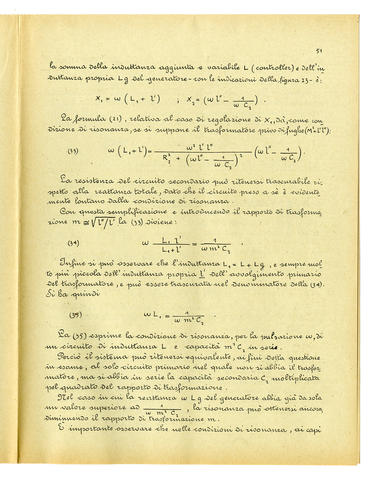 51
la somma della induttanza aggiunta e variabile L (controller) e dell'in
duttanza propria Lg del generatore - con le indicazioni della figura 23 - è:
X₁ = ω (L₁ + l') ; X₂ = (ω l'' - 1/(ω C₂)) .
La formula (21), relativa al caso di regolazione di X₁, dà, come con
dizione di risonanza, se si suppone il trasformatore privo di fughe (M² = l' l''):
(33) ω (L₁ + l') = (ω² l' l'')/(R₂² + (ω l'' - 1/(ω C₂))²) (ω l'' - 1/(ω C₂)) .
La resistenza del circuito secondario può ritenersi trascurabile ri,
spetto alla reattanza totale, dato che il circuito preso a sè è evidente
mente lontano dalla condizione di risonanza.
Con questa semplificazione e introducendo il rapporto di trasforma
zione m ≅ √(l''/l') la (33) diviene:
(34) ω (L₁ l')/(L₁ + l') = 1/(ω m² C₂) .
Infine si può osservare che l'induttanza L₁ = L + Lg, è sempre mol
to più piccola dell'induttanza propria l' dell'avvolgimento primario
del trasformatore, e può essere trascurata nel denominatore della (34).
Si ha quindi
(35) ω L₁ = 1/(ω m² C₂) .
La (35) esprime la condizione di risonanza, per la pulsazione ω, di
un circuito di induttanza L e capacità m² C₂ in serie.
Perciò il sistema può ritenersi equivalente, ai fini della questione
in esame, al solo circuito primario nel quale non si abbia il trasfor,
matore, ma si abbia in serie la capacità secondaria C₂ moltiplicata
pel quadrato del rapporto di trasformazione.
Nel caso in cui la reattanza ω Lg del generatore abbia già da sola
un valore superiore ad 1/(ω m² C₂), la risonanza può ottenersi ancora
diminuendo il rapporto di trasformazione m.
È importante osservare che nelle condizioni di risonanza, ai capi